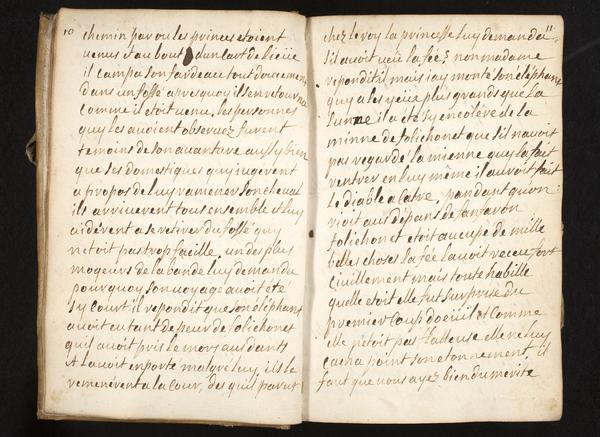 10
chemin par ou les princes etoient
venus et au bout dun cart de lieüe
il campa son fardeau tout doucement
dans un fossé apres quoy il sen retourna
comme il etoit venu, les personnes
quy les avoient observez furent
temoins de son avanture aussy bien
que ses domestiques quy jugerent
a propos de luy ramener son cheval
ils arriverent tous ensemble et luy
aiderent a se retirer du fossé quy
netoit pas trop facille. un des plus
moqeurs de la bande luy demanda
pourquoy son voyage avoit eté
sy court il repondit que son elephant
avoit eu tant de peur de folichonet
quil avoit pris le mors aus dants
et lavoit enporté malgre luy, ils le
remenerent a la cour, des quil parut
11
chez le roy la princesse luy demanda
sil avoit veu la fée, non madame
repondit il mais jay monté son elephant
quy a les yeüx plus grands que la
lune il a eté sy en colere de la
minne de folichonet que sil navoit
pas regardé la mienne quy la fait
rentrer en luy même il auroit fait
le diable a catre. pandant quon
rioit aus dépans de fanfaron
folichonet etoit aucupé de mille
belles choses la fée lavoit receu fort
civillement mais toute habille
quelle etoit elle fut surprise du
premier coup doeüil et comme
elle netoit pas flateuse elle ne luy
cacha point son etonnement, il
faut que vous ayez bien du merite